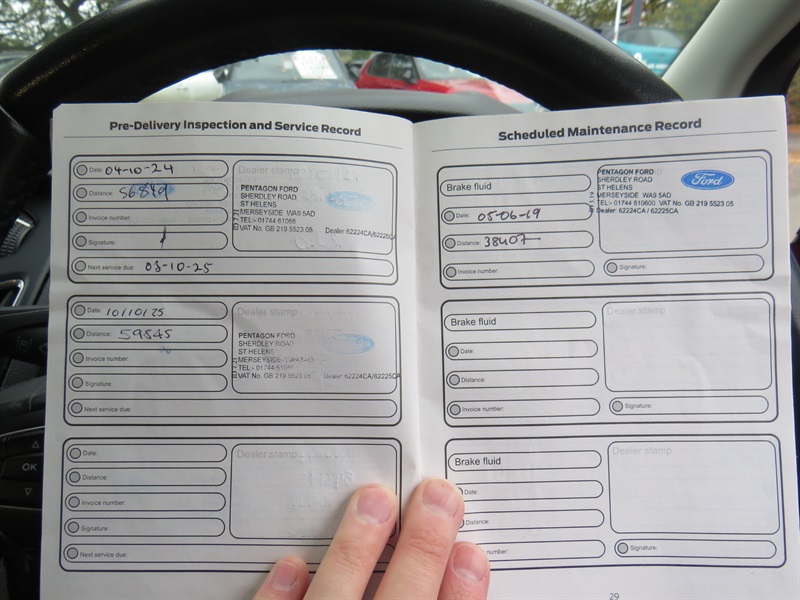 Pre-Delivery Inspection and Service Record
Date: 04-10-24
Distance: 56849
Invoice number:
Signature:
Next service due: 03-10-25
Dealer stamp
PENTAGON FORD
SHERDLEY ROAD
ST HELENS
MERSEYSIDE WA9 5AD
TEL:- 01744 61066
VAT No. GB 219 5523 05 Dealer 62224CA/62225CA
Date: 10/10/25
Distance: 59545
Invoice number:
Signature:
Next service due:
Dealer stamp
PENTAGON FORD
SHERDLEY ROAD
ST HELENS
MERSEYSIDE
TEL:-
VAT No. GB 219 5523 05 Dealer 62224CA/62225CA
Date:
Distance:
Invoice number:
Signature:
Next service due:
Dealer stamp
Scheduled Maintenance Record
Brake fluid
Date: 05-06-19
Distance: 38407
Invoice number:
PENTAGON FORD
SHERDLEY ROAD
ST HELENS
MERSEYSIDE WA9 5AD
TEL:- 01744 610600 VAT No. GB 219 5523 05
Dealer: 62224CA / 62225CA
Ford
Signature:
Brake fluid
Date:
Distance:
Invoice number:
Dealer stamp
Signature:
Brake fluid
Date:
Distance:
number:
Dealer stamp
Signature:
29
OK